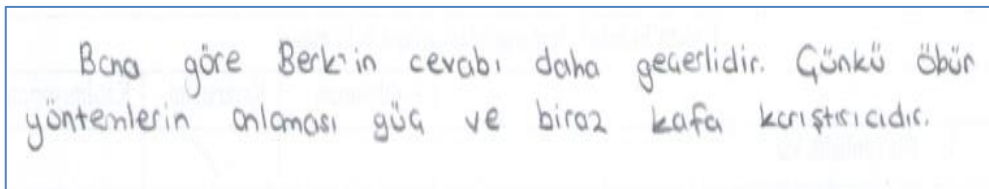 Bana göre Berk'in cevabı daha geçerlidir. Çünkü öbür
yöntemlerin anlaması güç ve biraz kafa karıştırıcıdır.